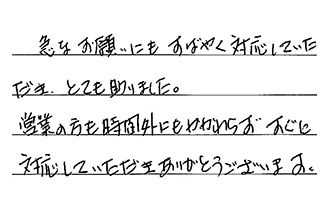 急なお願いにもすばやく対応していた
だき、とても助りました。
営業の方も時間外にもかかわらずすぐに
対応していただきありがとうございます。